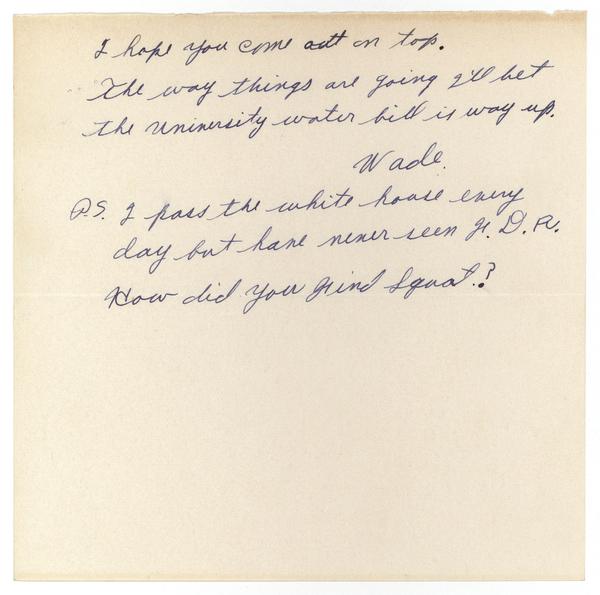 I hope you come out on top.
The way things are going I'll bet
the University water bill is way up.
Wade.
P.S. I pass the white house every
day but have never seen F. D. R.
How did you find Squat?